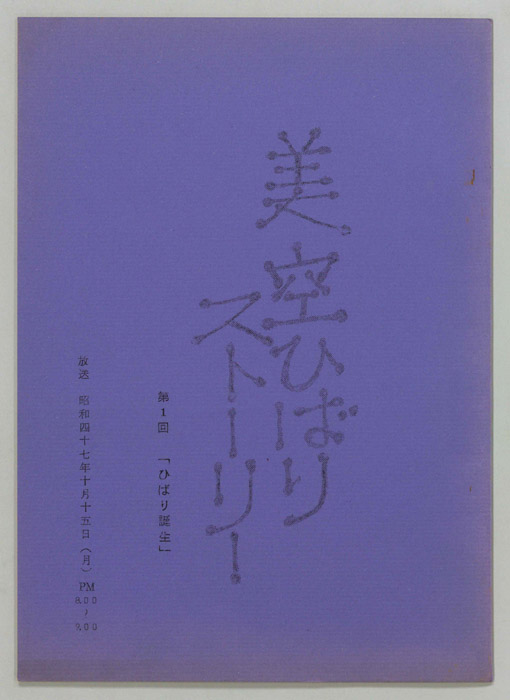 美空ひばり
ストーリー
第1回 「ひばり誕生」
放送 昭和四十七年十月十五日(月) PM 8.00〜9.00